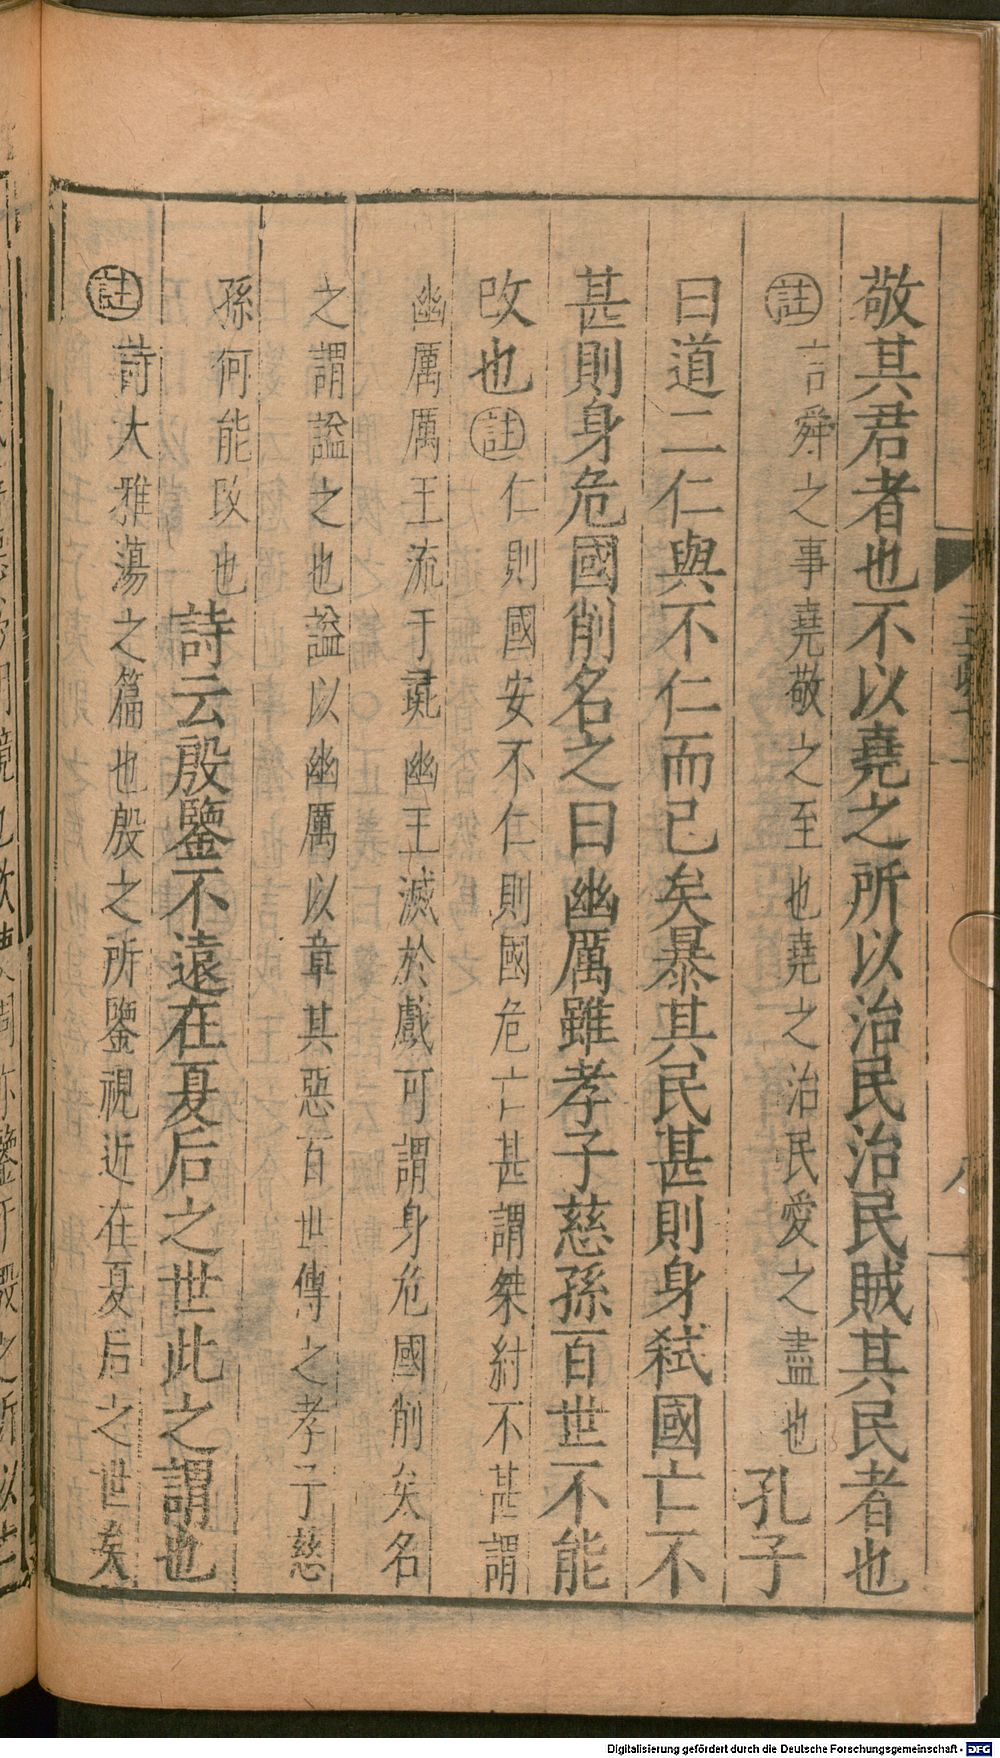 敬其君者也不以堯之所以治民治民賊其民者也
註言舜之事堯敬之至也堯之治民愛之盡也孔子
曰道二仁與不仁而已矣暴其民甚則身弑國亡不
甚則身危國削名之曰幽厲雖孝子慈孫百世不能
改也註仁則國安不仁則國危亡甚謂桀紂不甚謂
幽厲厲王流于彘幽王滅於戲可謂身危國削矣名
之謂謚之也謚以幽厲以章其惡百世傳之孝子慈
孫何能改也詩云殷鑒不遠在夏后之世此之謂也
註詩大雅蕩之篇也殷之所鑒視近在夏后之世矣
Digitalisierung gefördert durch die Deutsche Forschungsgemeinschaft - DFG